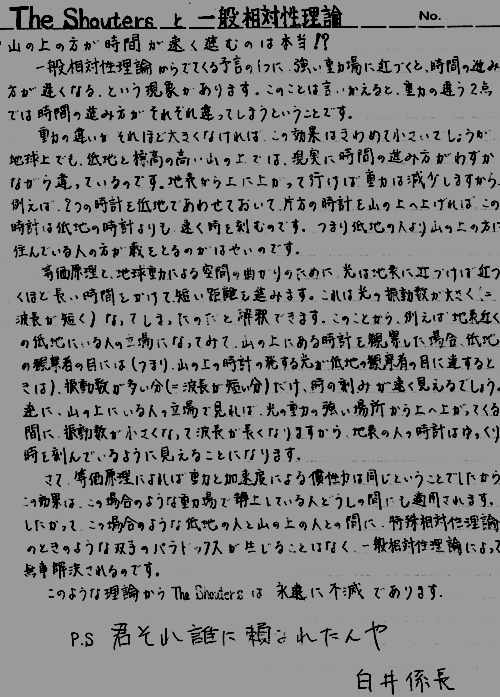 The Shouters と 一般相対性理論 No.
山の上の方が時間が速く進むのは本当!?
一般相対性理論からでてくる予言の1つに、強い重力場に近づくと、時間の進み
方が遅くなる、という現象があります。このことは言いかえると、重力の違う2点
では時間の進み方がそれぞれ違ってしまうということです。
重力の違いがそれほど大きくなければ、この効果はきわめて小さいでしょうが、
地球上でも、低地と標高の高い山の上では、現実に時間の進み方がわずか
ながら違っているのです。地表から上に上がって行けば重力は減少しますから、
例えば、2つの時計を低地であわせておいて、片方の時計を山の上へ上げれば、この
時計は低地の時計よりも、速く時を刻むのです。つまり低地の人より山の上の方に
住んでいる人の方が歳をとるのがはやいのです。
等価原理と、地球重力による空間の曲がりのために、光は地表に近づけば近づ
くほど長い時間をかけて短い距離を進みます。これは光の振動数が大きく(=
波長が短く)なってしまったのだと解釈できます。このことから、例えば地表近く
の低地にいる人の立場になってみて、山の上にある時計を観察した場合、低地
の観察者の目には(つまり、山の上の時計の発する光が低地の観察者の目に達すると
きは)、振動数が多い分(=波長が短い分)だけ、時の刻みが速く見えるでしょう。
逆に、山の上にいる人の立場で見れば、光の重力の強い場所から上へ上がってくる
間に、振動数が小さくなって波長が長くなりますから、地表の人の時計はゆっくり
時を刻んでいるように見えることになります。
さて、等価原理によれば重力と加速度による慣性力は同じということでしたから
この効果は、この場合のような重力場で静止している人どうしの間にも適用されます。
したがって、この場合のような低地の人と山の上の人との間に、特殊相対性理論
のときのような双子のパラドックスが生じることはなく、一般相対性理論によって
無事解決されるのです。
このような理論から The Shouters は 永遠に不滅であります.
P.S 君それ誰に頼まれたんや
白井係長